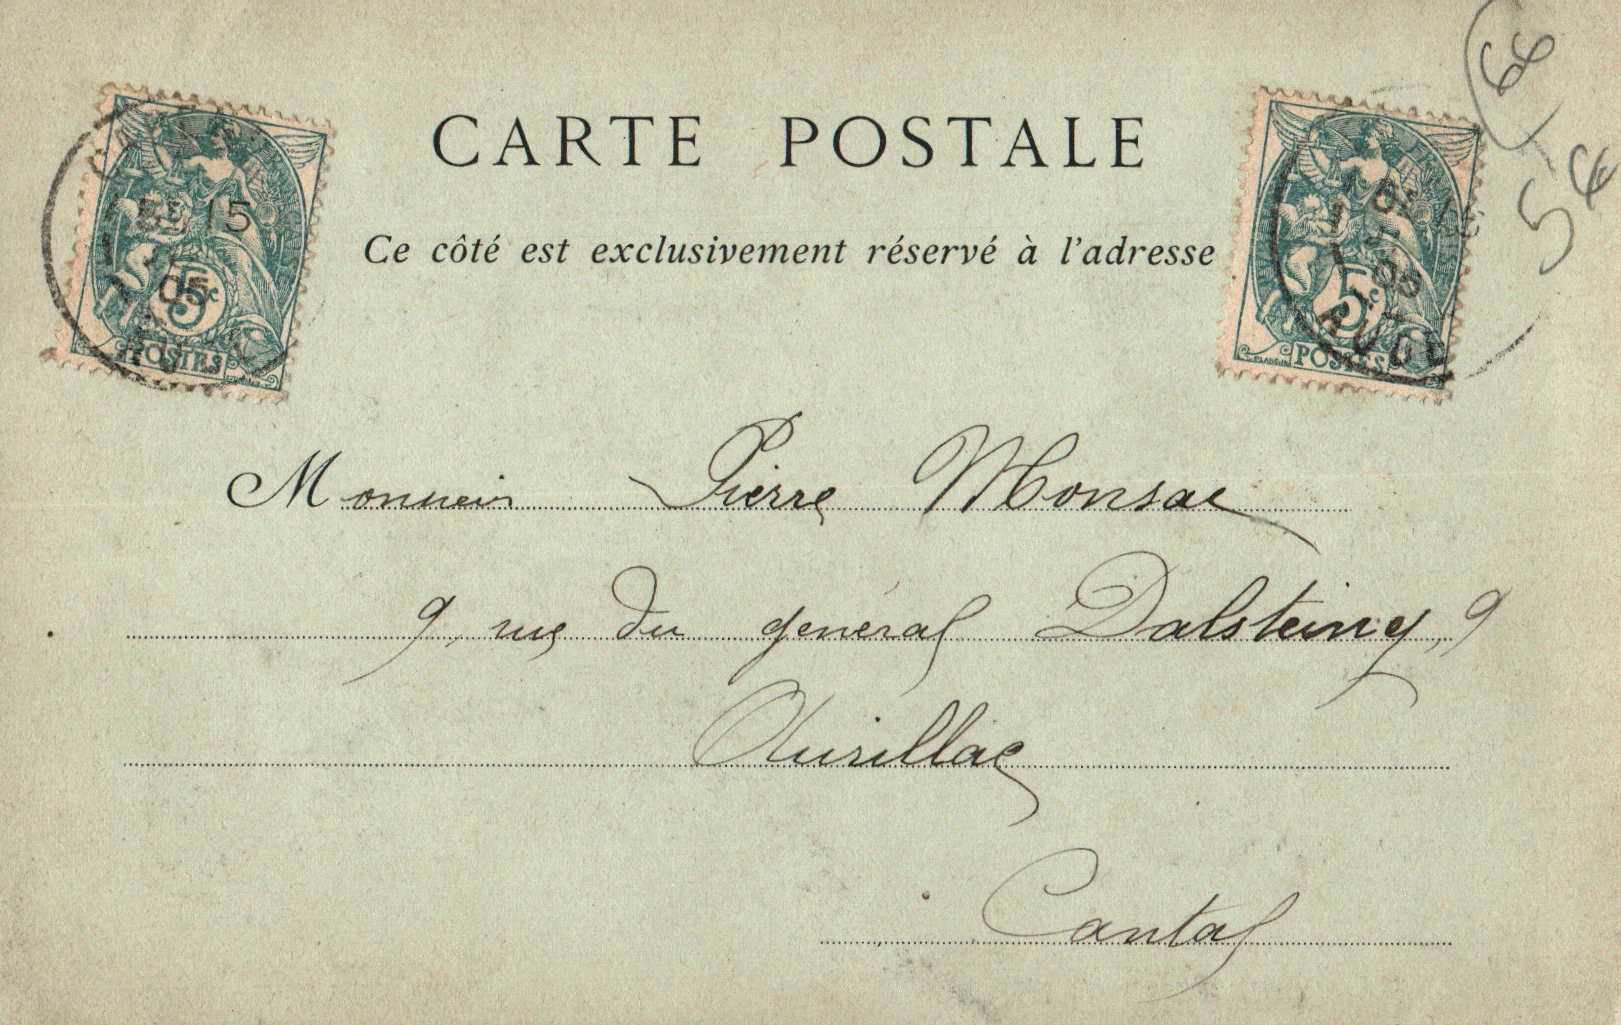 CARTE POSTALE
Ce côté est exclusivement réservé à l'adresse
66
5€
15
05
5c
POSTES
5c
POSTES
Monsieur Pierre Monsac
9, rue du général Dalsteing, 9
Aurillac
Cantal